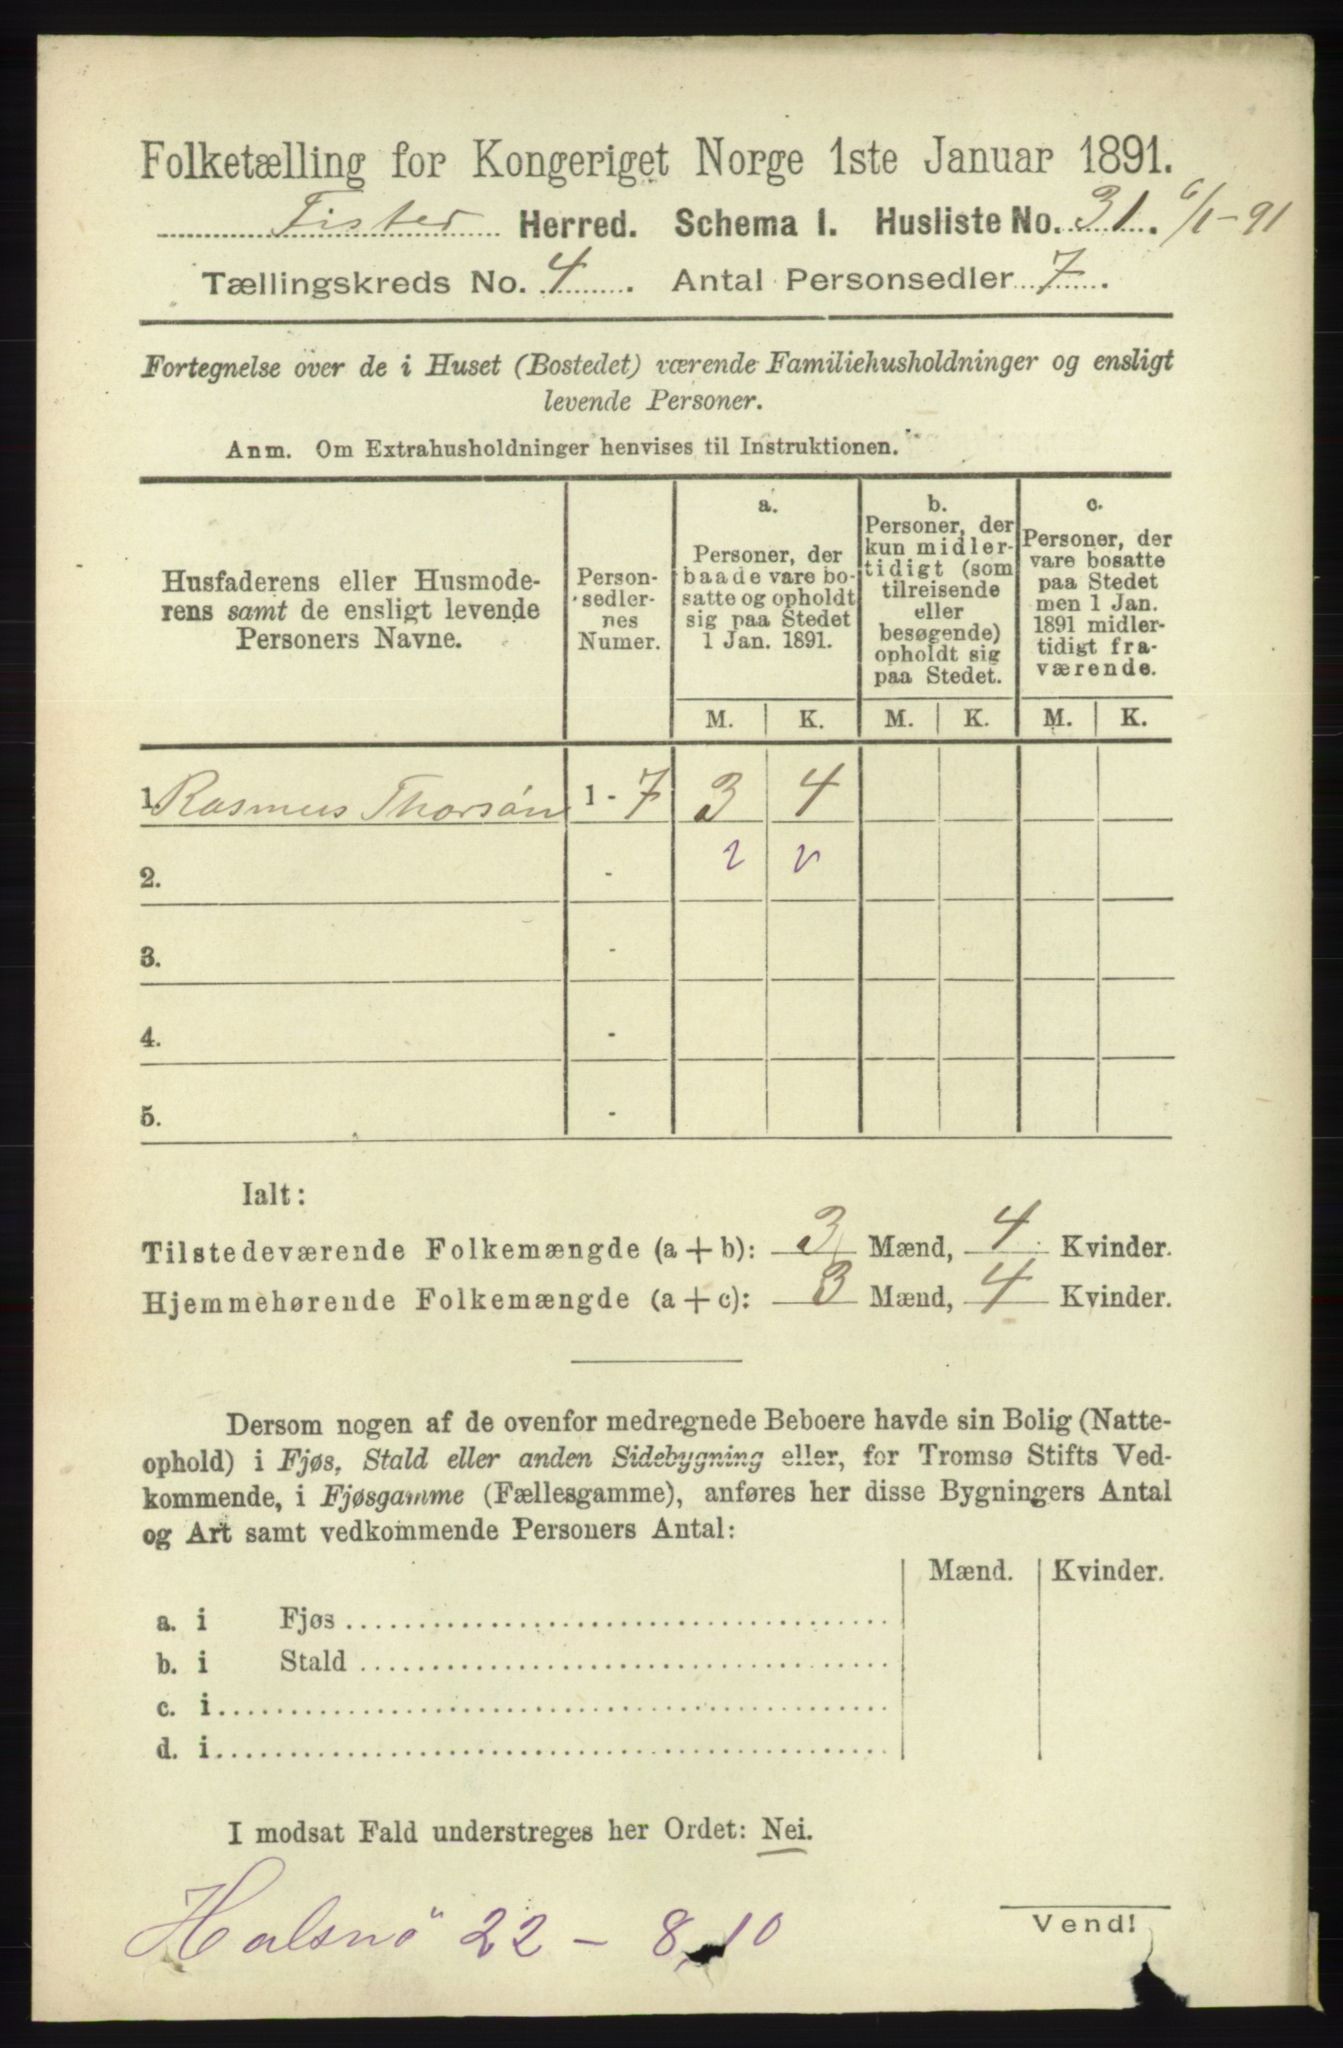 Folketælling for Kongeriget Norge 1ste Januar 1891.
Fister Herred. Schema I. Husliste No. 31. 6/1-91
Tællingskreds No. 4. Antal Personsedler 7.
Fortegnelse over de i Huset (Bostedet) værende Familiehusholdninger og ensligt
levende Personer.
Anm. Om Extrahusholdninger henvises til Instruktionen.
Husfaderens eller Husmode-
rens samt de ensligt levende
Personers Navne.
Person-
sedler-
nes
Numer.
a.
Personer, der
baade vare bo-
satte og opholdt
sig paa Stedet
1 Jan. 1891.
b.
Personer, der
kun midler-
tidigt (som
tilreisende
eller
besøgende)
opholdt sig
paa Stedet.
c.
Personer, der
vare bosatte
paa Stedet
men 1 Jan.
1891 midler-
tidigt fra-
værende.
M. K. M. K. M. K.
1. Rasmus Thorsön 1 - 7 3 4
2. - 2 v
3. -
4. -
5. -
Ialt:
Tilstedeværende Folkemængde (a + b): 3 Mænd, 4 Kvinder.
Hjemmehørende Folkemængde (a + c): 3 Mænd, 4 Kvinder.
Dersom nogen af de ovenfor medregnede Beboere havde sin Bolig (Natte-
ophold) i Fjøs, Stald eller anden Sidebygning eller, for Tromsø Stifts Ved-
kommende, i Fjøsgamme (Fællesgamme), anføres her disse Bygningers Antal
og Art samt vedkommende Personers Antal:
Mænd. Kvinder.
a. i Fjøs
b. i Stald
c. i
d. i
I modsat Fald understreges her Ordet: Nei.
Halsnö 22 - 8,10
Vend!